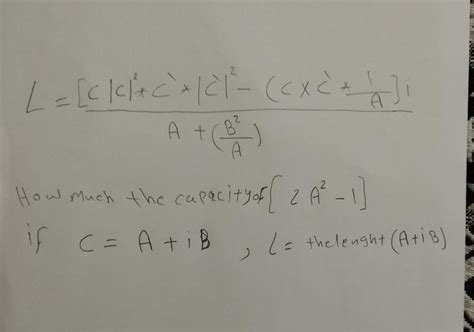 L = [C|C|² * C̀ * |C̀|² - (C × C̀ * 1/A)]i
A + (B²/A)
How much the capacity of [2A² - 1]
if C = A + iB , L = the lenght (A + iB)